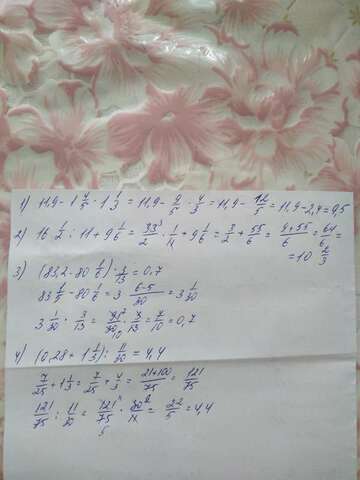 1) 11,9 - 1 4/5 · 1 1/3 = 11,9 - 9/5 · 4/3 = 11,9 - 12/5 = 11,9 - 2,4 = 9,5
2) 16 1/2 : 11 + 9 1/6 = 33³/2 · 1/11 + 9 1/6 = 3/2 + 55/6 = (9+55)/6 = 64/6 =
= 10 2/3
3) (83,2 - 80 1/6) · 3/13 = 0,7
83 1/5 - 80 1/6 = 3 (6-5)/30 = 3 1/30
3 1/30 · 3/13 = 91⁷/30 10 · 3/13 = 7/10 = 0,7
4) (0,28 + 1 1/3) : 11/30 = 4,4
7/25 + 1 1/3 = 7/25 + 4/3 = (21+100)/75 = 121/75
121/75 : 11/30 = 121¹¹/75 5 · 30²/11 = 22/5 = 4,4